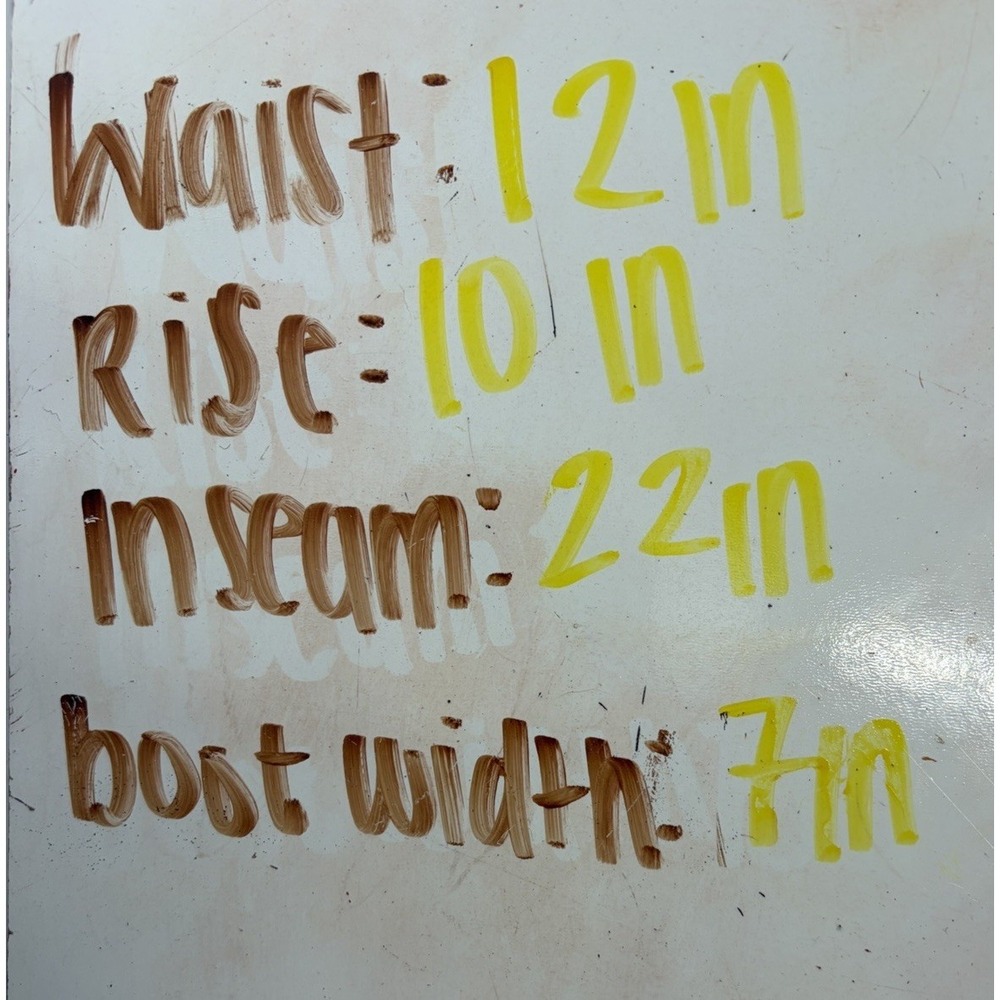 Waist: 12in
Rise: 10 in
inseam: 22in
bost width: 7in